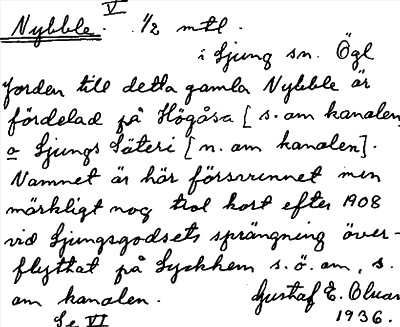 V
Nybble. 1/2 mtl.
i Ljung sn. Ögl
Jorden till detta gamla Nybble är
fördelad på Högåsa [s. om kanalen
o Ljungs Säteri [n. om kanalen].
Namnet är här försvunnet men
märkligt nog trol kort efter 1908
vid Ljungsgodsets sprängning över-
flyttat på Lyckhem s.ö. om, s.
om kanalen. Gustaf E.
Se VI 1936.